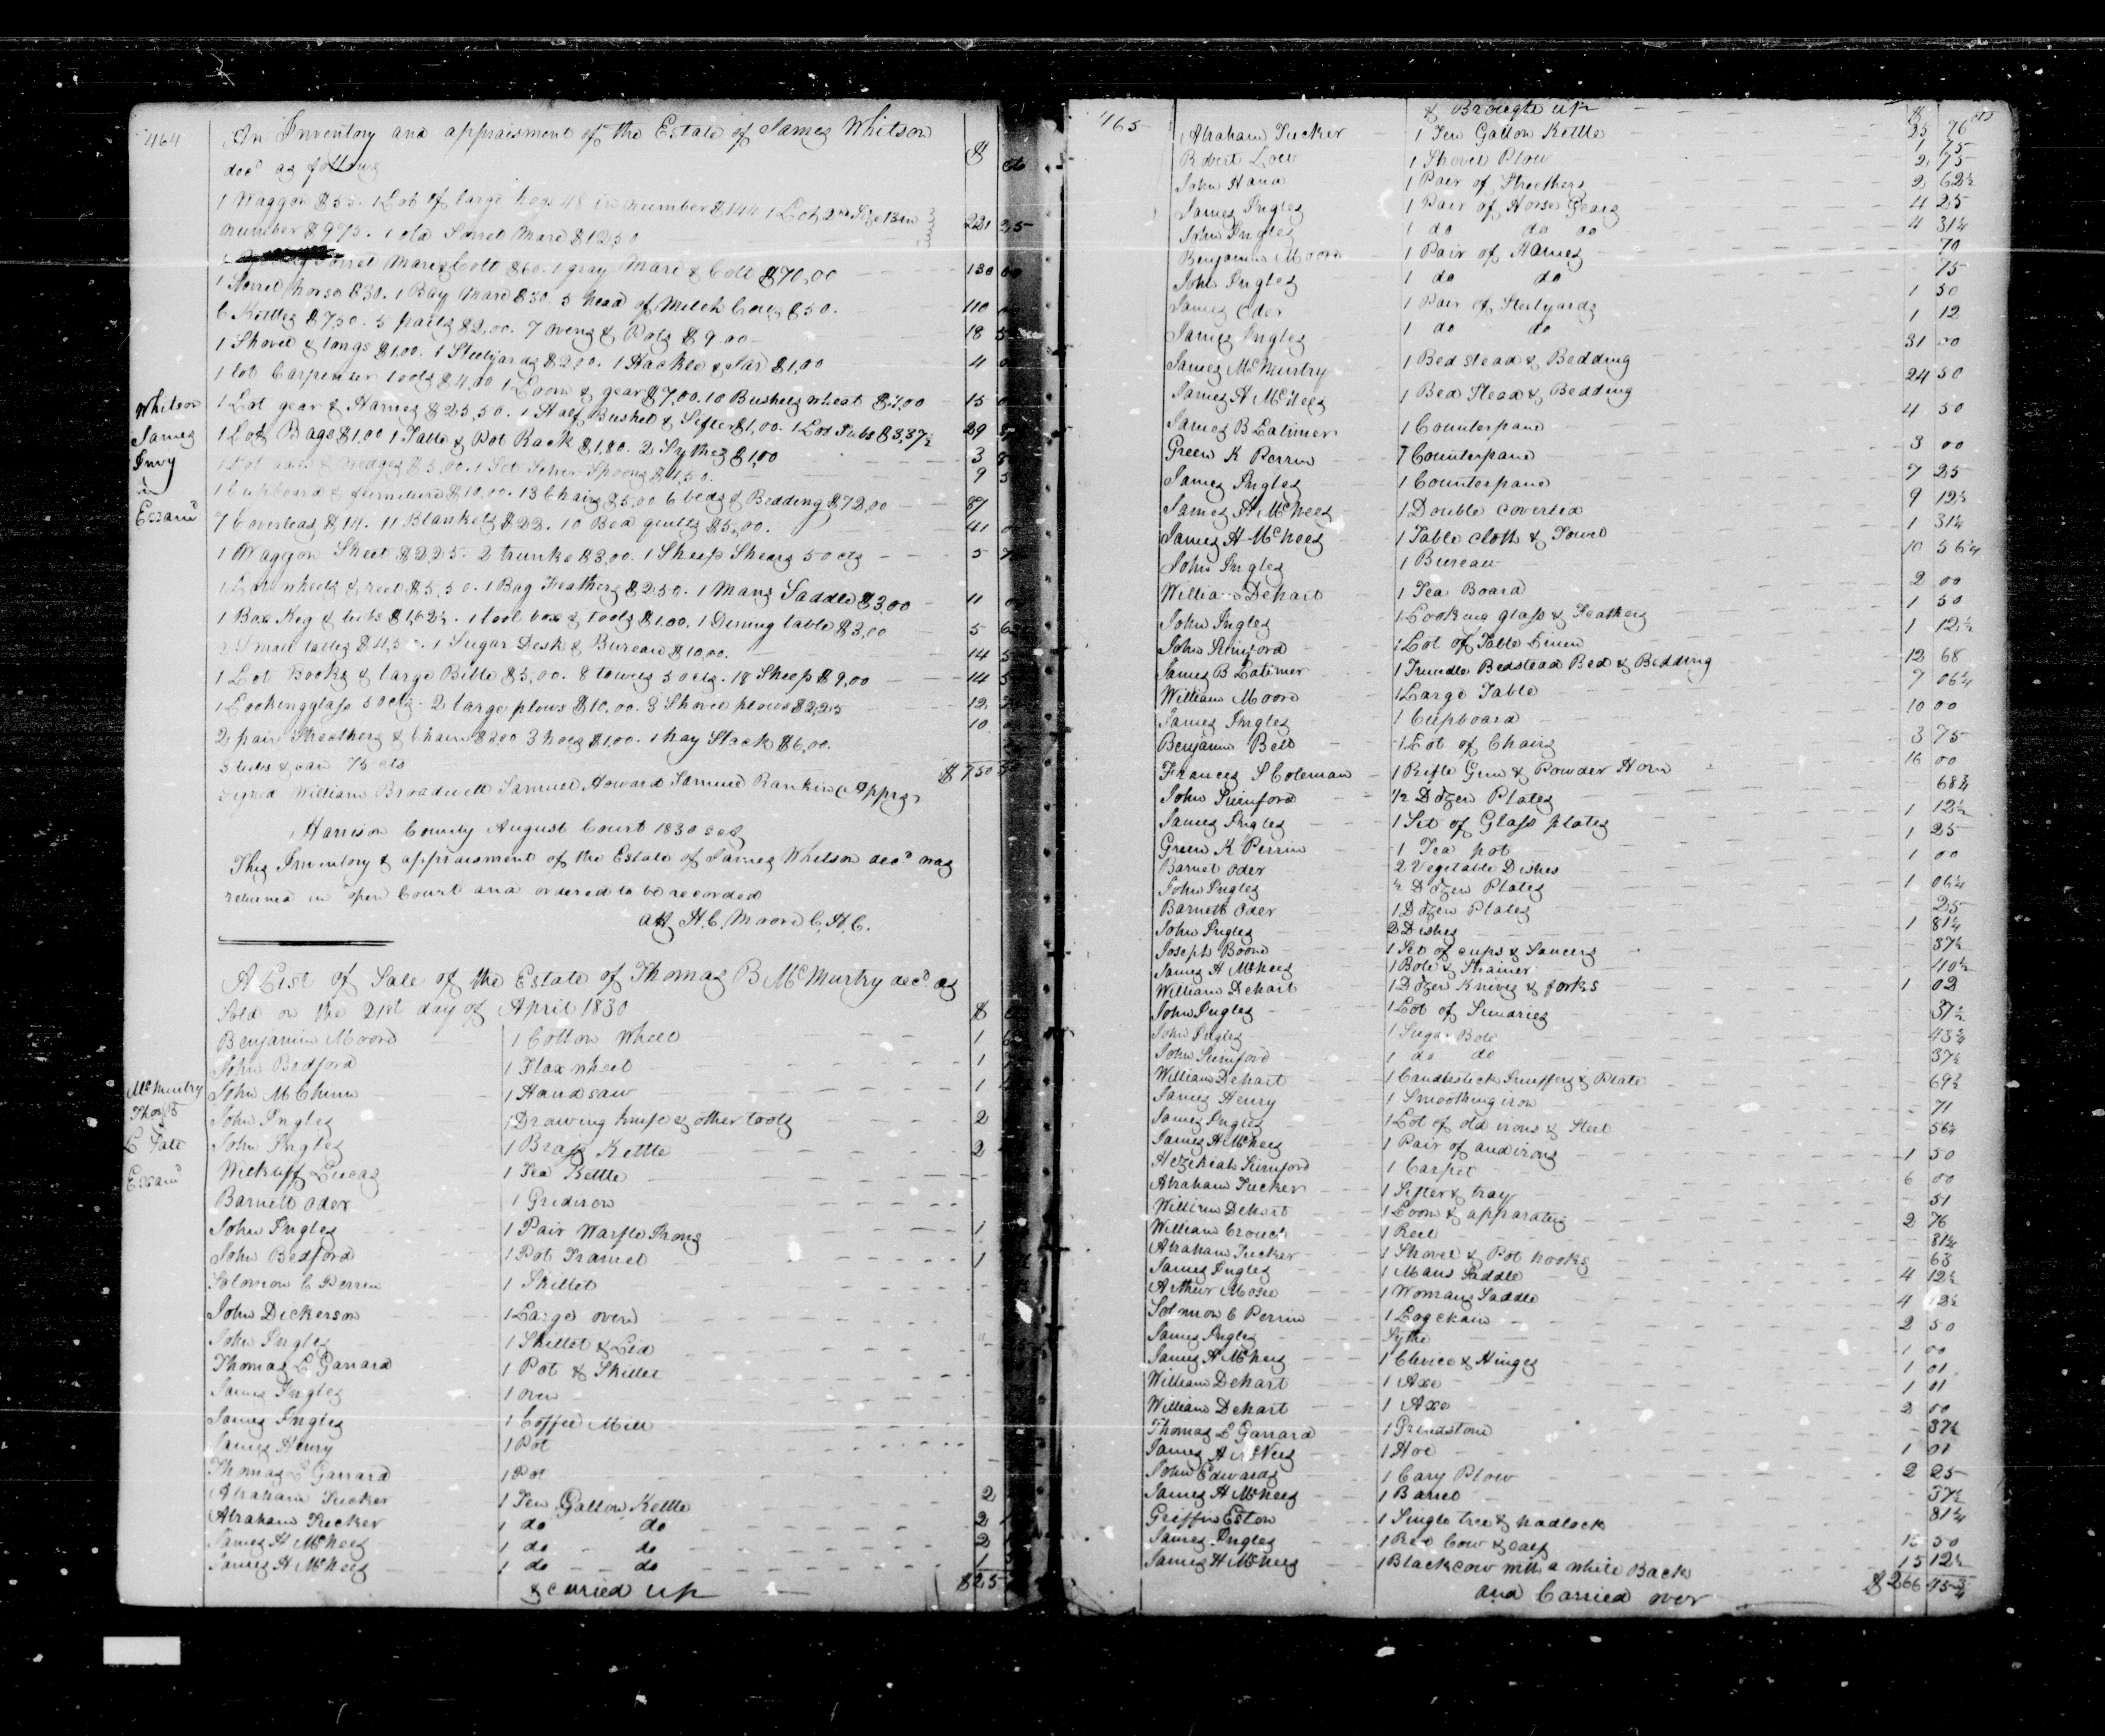 464
An Inventory and appraisment of the Estate of James Whitson
decd as follows
$ cts
1 Waggon $55. 1 Lot of large hogs 48 in number $144 1 Lot 2nd Size 13 in
number $9 75. 1 old Sorrel Mare $12 50 221 25
Sorrel Mare & Colt $60. 1 gray Mare & Colt $70,00 130 00
1 Sorrel horse $30. 1 Bay Mare $30. 5 head of Milch Cows $50. 110
6 Kettles $7,50. 5 pails $2,00. 7 ovens & Pots $9.00 18 5
1 Shovel & tongs $1.00. 1 Steelyards $2,00. 1 Hackle & Jar $1,00 4 0
1 lot Carpenter tools $4,00 1 Loom & gear $7,00. 10 Bushels wheat $4,00 15 0
1 Lot gear & Hames $25,50. 1 Half Bushel & Sifter $1,00. 1 Lot Tubs $3,37½ 29 8
1 Lot Bags $1,00 1 Table & Pot Rack $1,80. 2 Sythes $1,00 3 8
1 Lot axes & Wedges $5,00. 1 Set Silver Spoons $4,50. 9 5
1 Cupboard & furniture $10,00. 13 Chairs $5,00 6 beds & Bedding $72,00 87
7 Coverleds $14. 11 Blankets $22. 10 Bed quilts $5,00. 41 0
1 Waggon Sheet $2,25. 2 trunks $3,00. 1 Sheep Shears 50 cts 5 7
1 Lot wheels & reel $5,50. 1 Bag Feathers $2.50. 1 Mans Saddle $3,00 11 0
1 Box Keg & tubs $1,62½. 1 tool box & tools $1.00. 1 Dining table $3,00 5 6
Small tables $4,50. 1 Sugar Desk & Bureau $10,00. 14 5
1 Lot Books & large Bible $5,00. 8 towels 50 cts. 18 Sheep $9,00 14 5
1 Lookingglass 50 cts. 2 large plows $10,00. 3 Shovel plows $2,25 12
2 pair Strechers & Chain $3 00 3 hoes $1,00. 1 hay Stack $6,00. 10
3 tubs & can 75 cts $750
Signed William Broadwell Samuel Howard Samuel Rankin (Apprs
Whitson
James
Invy
in
Examd
Harrison County August Court 1830 sct
This Inventory & appraisment of the Estate of James Whitson decd was
returned in open Court and ordered to be recorded
att H. C. Moore C. H. C.
A List of Sale of the Estate of Thomas B McMurtry decd as
Sold on the 21st day of April 1830 $
McMurtry
Thos B
Sale
Examd
Benjamin Moore 1 Cotton Wheel 1 6
John Bedford 1 Flax wheel 1
John McChinn 1 Hand saw 1
John Ingles 1 Drawing knife & other tools 2
John Ingles 1 Brass Kettle 2
Wickliff Lucas 1 Tea Kettle
Barnett Oder 1 Gridiron
John Ingles 1 Pair Waffle Irons 1
John Bedford 1 Pot Tramel 1
Solomon C Perrin 1 Skillet
John Dickerson 1 Large oven
John Ingles 1 Skillet & Lid
Thomas L Garrard 1 Pot & Skillet
James Ingles 1 oven
James Ingles 1 Coffee Mill
James Henry 1 Pot
Thomas L Garrard 1 Pot
Abraham Tucker 1 Ten Gallon Kettle 2
Abraham Tucker 1 do do 2
James H McNees 1 do do 2
James H McNees 1 do do 1
& carried up $25
465
& Brought up $ cts
25 76
Abraham Tucker 1 Ten Gallon Kettle 1 75
Robert Lowe 1 Shovel Plow 2 75
John Hana 1 Pair of Strechers 2 62½
James Ingles 1 Pair of Horse Gears 4 25
John Ingles 1 do do do 4 31¼
Benjamin Moore 1 Pair of Hames 70
John Ingles 1 do do 75
James Oder 1 Pair of Steelyards 1 50
James Ingles 1 do do 1 12
James McMurtry 1 Bed stead & Bedding 31 00
James H McNees 1 Bed Stead & Bedding 24 50
James B Latimer 1 Counterpane 4 50
Green K Perrin 1 Counterpane 3 00
James Ingles 1 Counterpane 7 25
James H McNees 1 Double coverled 9 12½
James H McNees 1 Table cloth & Towel 1 31¼
John Ingles 1 Bureau 10 56¼
William Dehart 1 Tea Board 2 00
John Ingles 1 Looking glass & Feathers 1 50
John Renford 1 Lot of Table Linen 1 12½
James B Latimer 1 Trundle Bedstead Bed & Bedding 12 68
William Moore 1 Large Table 7 06¼
James Ingles 1 Cupboard 10 00
Benjamin Bell 1 Lot of Chairs 3 75
Frances S Coleman 1 Rifle Gun & Powder Horn 16 00
John Renford ½ Dozen Plates 68¾
James Ingles 1 Set of Glass plates 1 12½
Green K Perrin 1 Tea pot 1 25
Barnet Oder 2 Vegetable Dishes 1 00
John Ingles ½ Dozen Plates 1 06¼
Barnett Oder 1 Dozen Plates 25
John Ingles 2 Dishes 1 81¼
Joseph Boone 1 Set of cups & Saucers 37½
James H McNees 1 Bole & Strainer 40½
William Dehart 1 Dozen Knives & forks 1 02
John Ingles 1 Lot of Sundries 37½
John Ingles 1 Sugar Bole 43¾
John Renford 1 do do 37½
William Dehart 1 Candlestick Snuffers & Plate 69½
James Henry 1 Smoothing iron 71
James Ingles 1 Lot of old irons & Steel 56¼
James H McNees 1 Pair of andirons 1 50
Hezekiah Renford 1 Carpet 6 00
Abraham Tucker 1 Sifter & tray 51
William Dehart 1 Loom & apparatus 2 76
William Crouch 1 Reel 81¼
Abraham Tucker 1 Shovel & Pot hooks 63
James Ingles 1 Mans Saddle 4 12½
Arthur Mosee 1 Womans Saddle 4 12½
Solomon C Perrin 1 Logchain 2 50
James Ingles Sythe 1 00
James H McNees 1 Clevice & Hinges 1 01
William Dehart 1 Axe 1 01
William Dehart 1 Axe 2 00
Thomas L Garrard 1 Grindstone 37½
James H McNees 1 Hoe 1 01
John Edwards 1 Cary Plow 2 25
James H McNees 1 Barrel 37½
Griffin Eston 1 Single tree & padlock 81¼
James Ingles 1 Red Cow & calf 12 50
James H McNees 1 Black cow with a white Back 15 12½
and Carried over $266 45¾